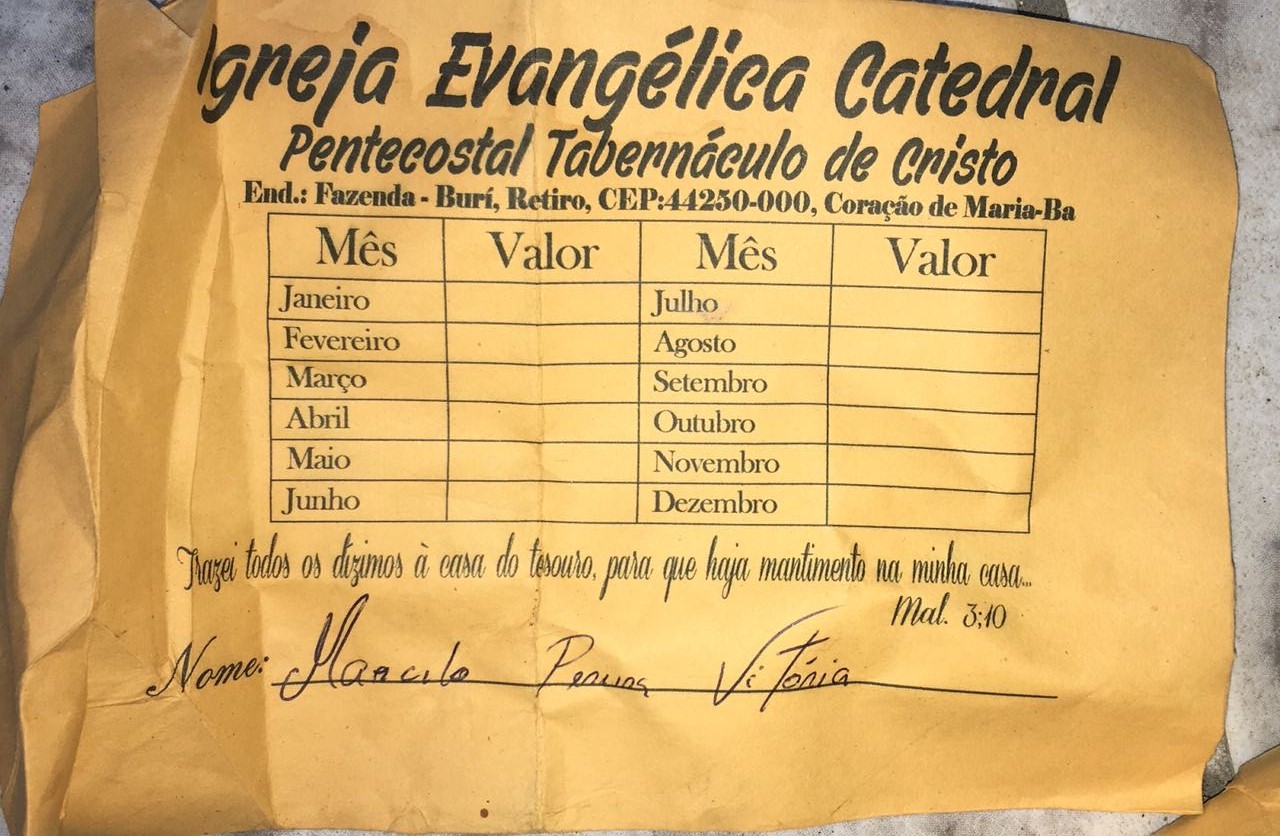 Igreja Evangélica Catedral
Pentecostal Tabernáculo de Cristo
End.: Fazenda - Burí, Retiro, CEP:44250-000, Coração de Maria-Ba
Mês Valor Mês Valor
Janeiro Julho
Fevereiro Agosto
Março Setembro
Abril Outubro
Maio Novembro
Junho Dezembro
Trazei todos os dizimos à casa do tesouro, para que haja mantimento na minha casa...
Mal. 3;10
Nome: Vitória